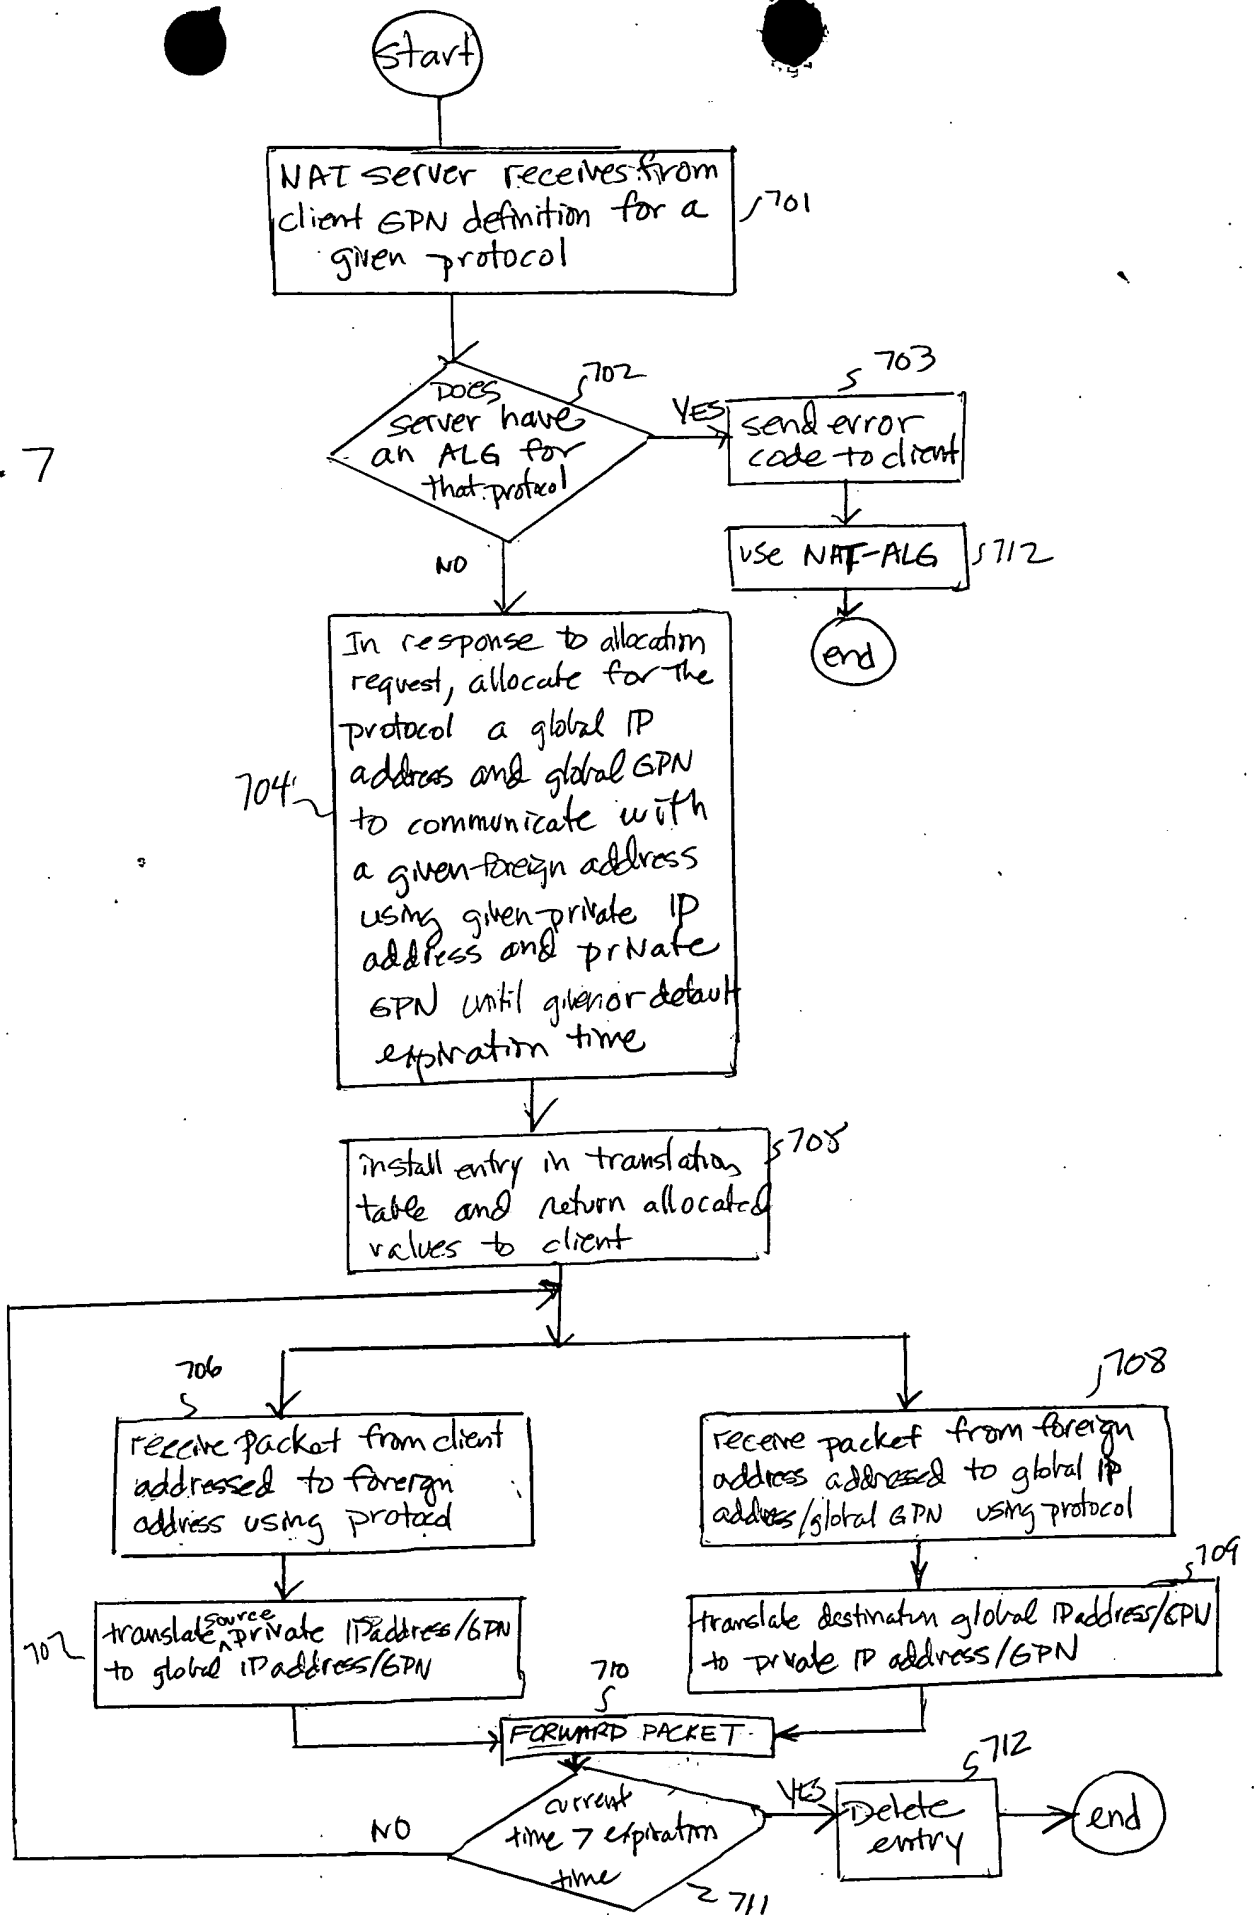 start
NAT server receives from
client GPN definition for a
given protocol
701
. 7
Does
server have
an ALG for
that protocol
702
YES
703
send error
code to client
use NAT-ALG
712
end
NO
In response to allocation
request, allocate for the
protocol a global IP
address and global GPN
to communicate with
a given foreign address
using given private IP
address and private
GPN until given or default
expiration time
704
install entry in translation
table and return allocated
values to client
705
706
receive packet from client
addressed to foreign
address using protocol
708
receive packet from foreign
address addressed to global IP
address/global GPN using protocol
707
translate source private IP address/GPN
to global IP address/GPN
709
translate destination global IP address/GPN
to private IP address/GPN
710
FORWARD PACKET
current
time > expiration
time
711
NO
YES
712
Delete
entry
end